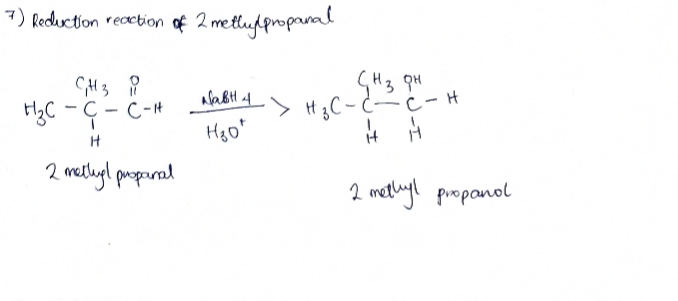 7) Reduction reaction of 2 methylpropanal
CH3 O CH3 OH
H3C - C - C-H NaBH4 > H3C - C - C - H
H H3O+ H H
2 methyl propanal
2 methyl propanol